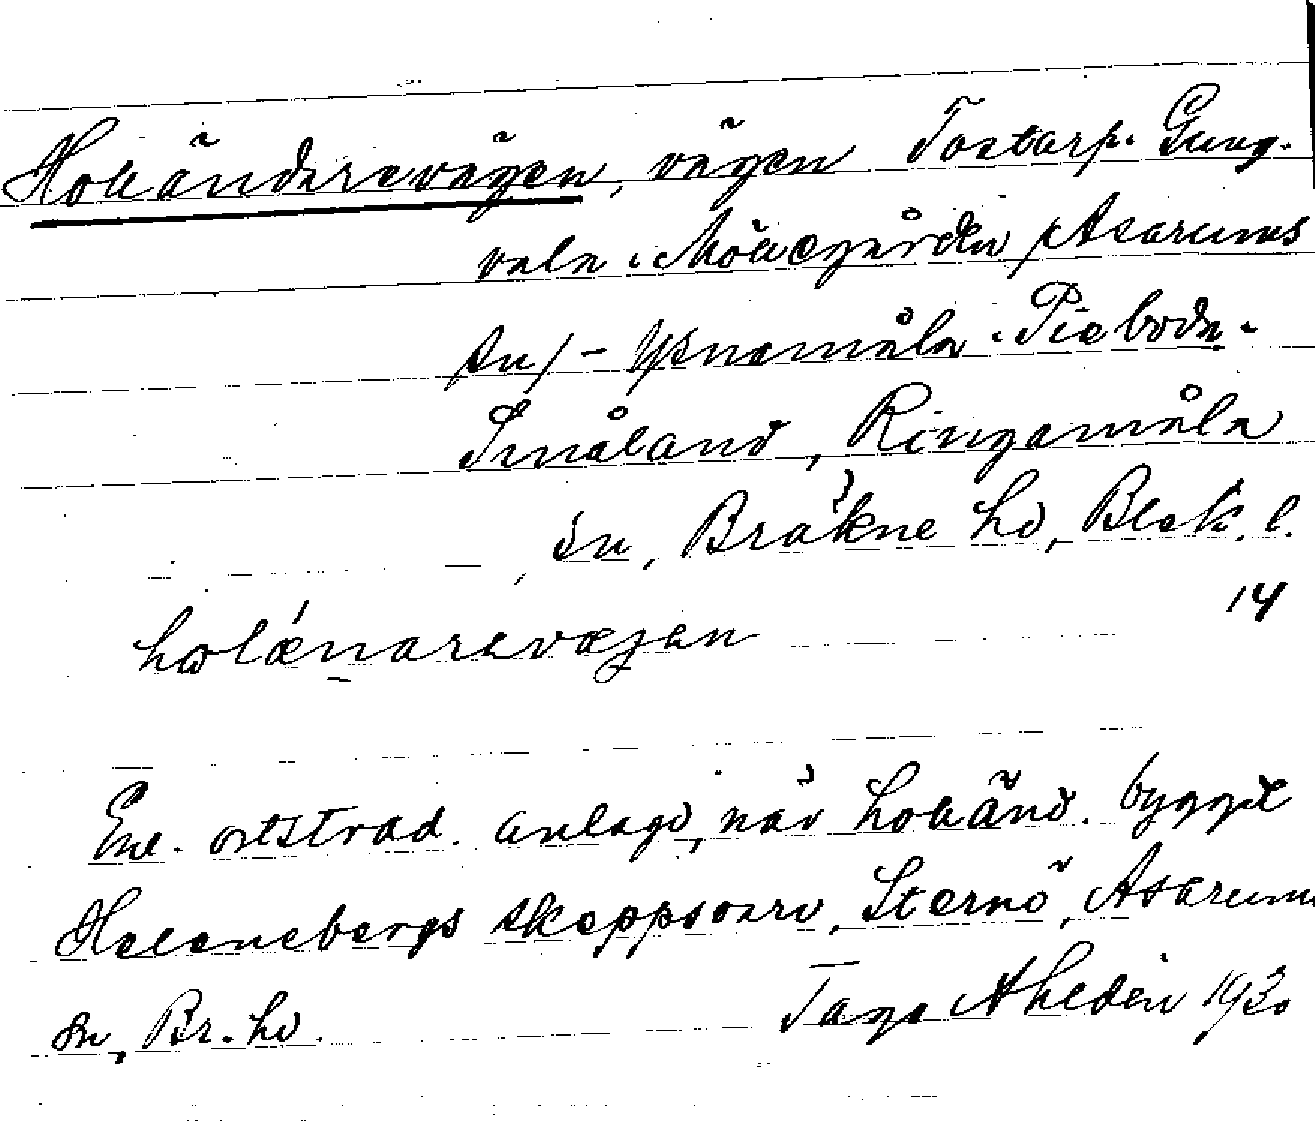 Holländarevägen, vägen Tostarp - Gung-
vala - Möllegården /Asarums
sn/ - Ysnamåla - Pieboda -
Småland, Ringamåla
sn, Bräkne hd, Blek. l.
14
holǽnarevægen
Enl. ortstrad. anlagd, när holländ. byggde
Hellenebergs skeppsvarv, Sternö, Asarums
sn, Br. hd. Tage Ahldén 1930